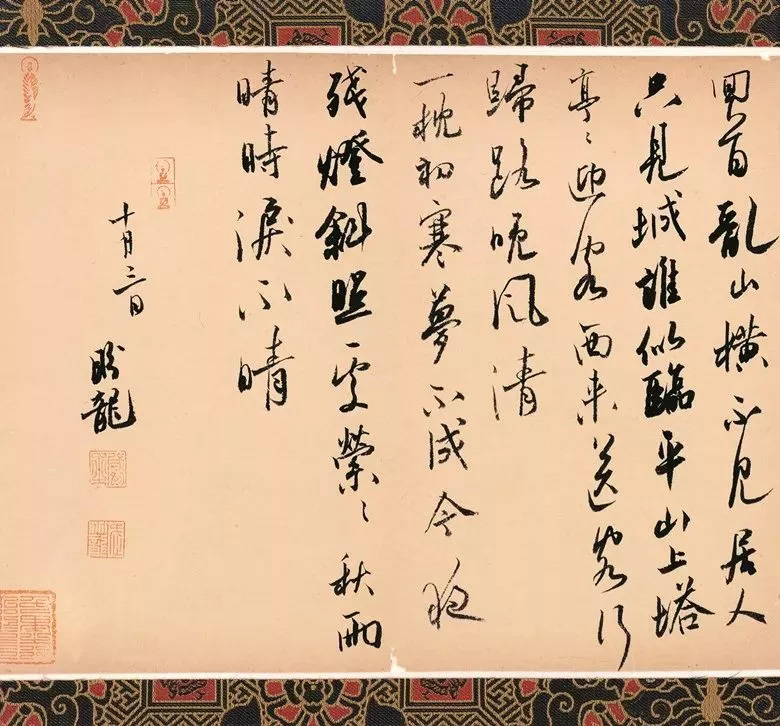 回首亂山橫不見居人
只見城誰似臨平山上塔
亭〻迎客西来送客行
歸路晚風清
一枕初寒夢不成今夜
殘燈斜照處熒〻秋雨
晴時淚不晴
十月三日
盼龍